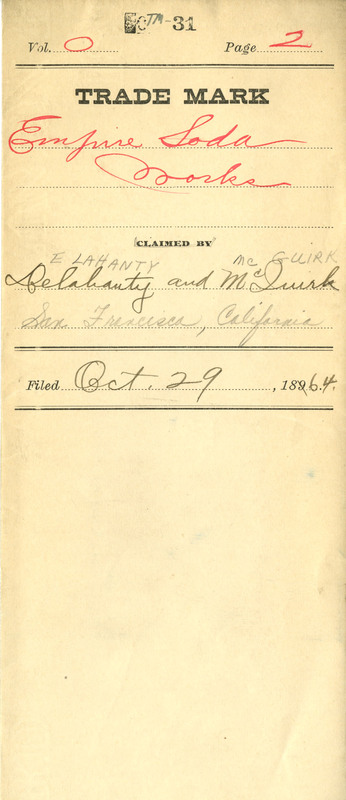 TM-31
Vol. 0 Page 2
TRADE MARK
Empire Soda
Works
CLAIMED BY
E LAHANTY Mc GUIRK
Delahanty and McGuirk
San Francisco, California
Filed Oct. 29, 1864.